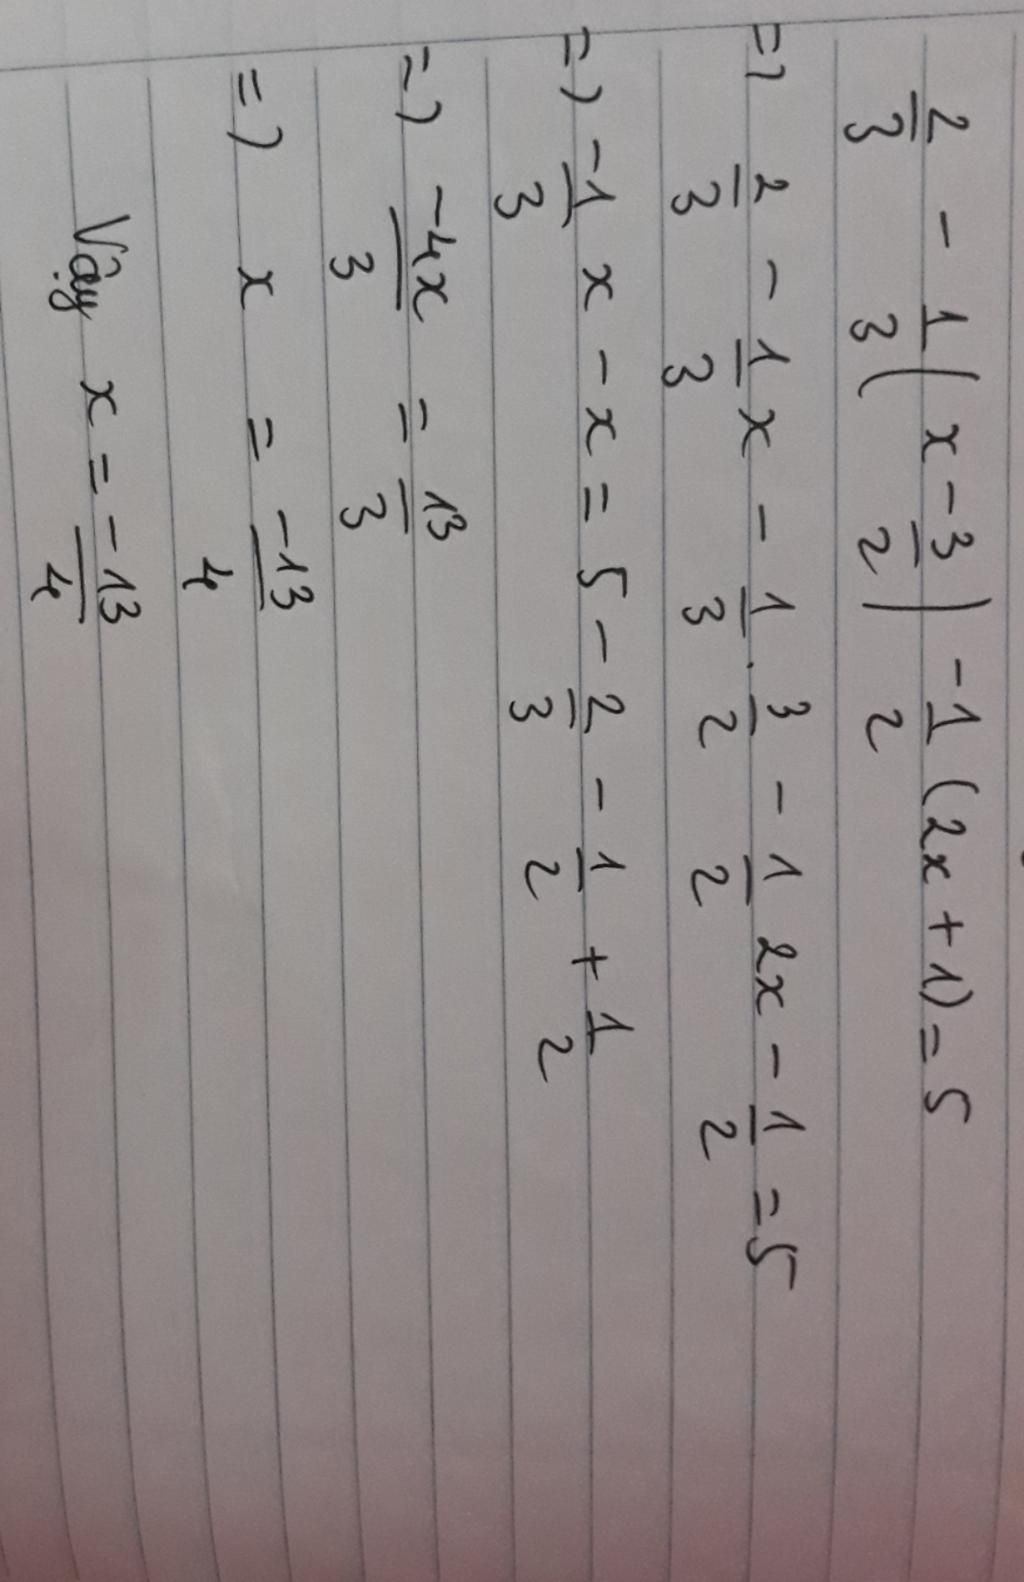 2/3 - 1/3 (x - 3/2) - 1/2 (2x + 1) = 5
=) 2/3 - 1/3 x - 1/3 . 3/2 - 1/2 2x - 1/2 = 5
=) -1/3 x - x = 5 - 2/3 - 1/2 + 1/2
=) -4x/3 = 13/3
=) x = -13/4
Vậy x = -13/4